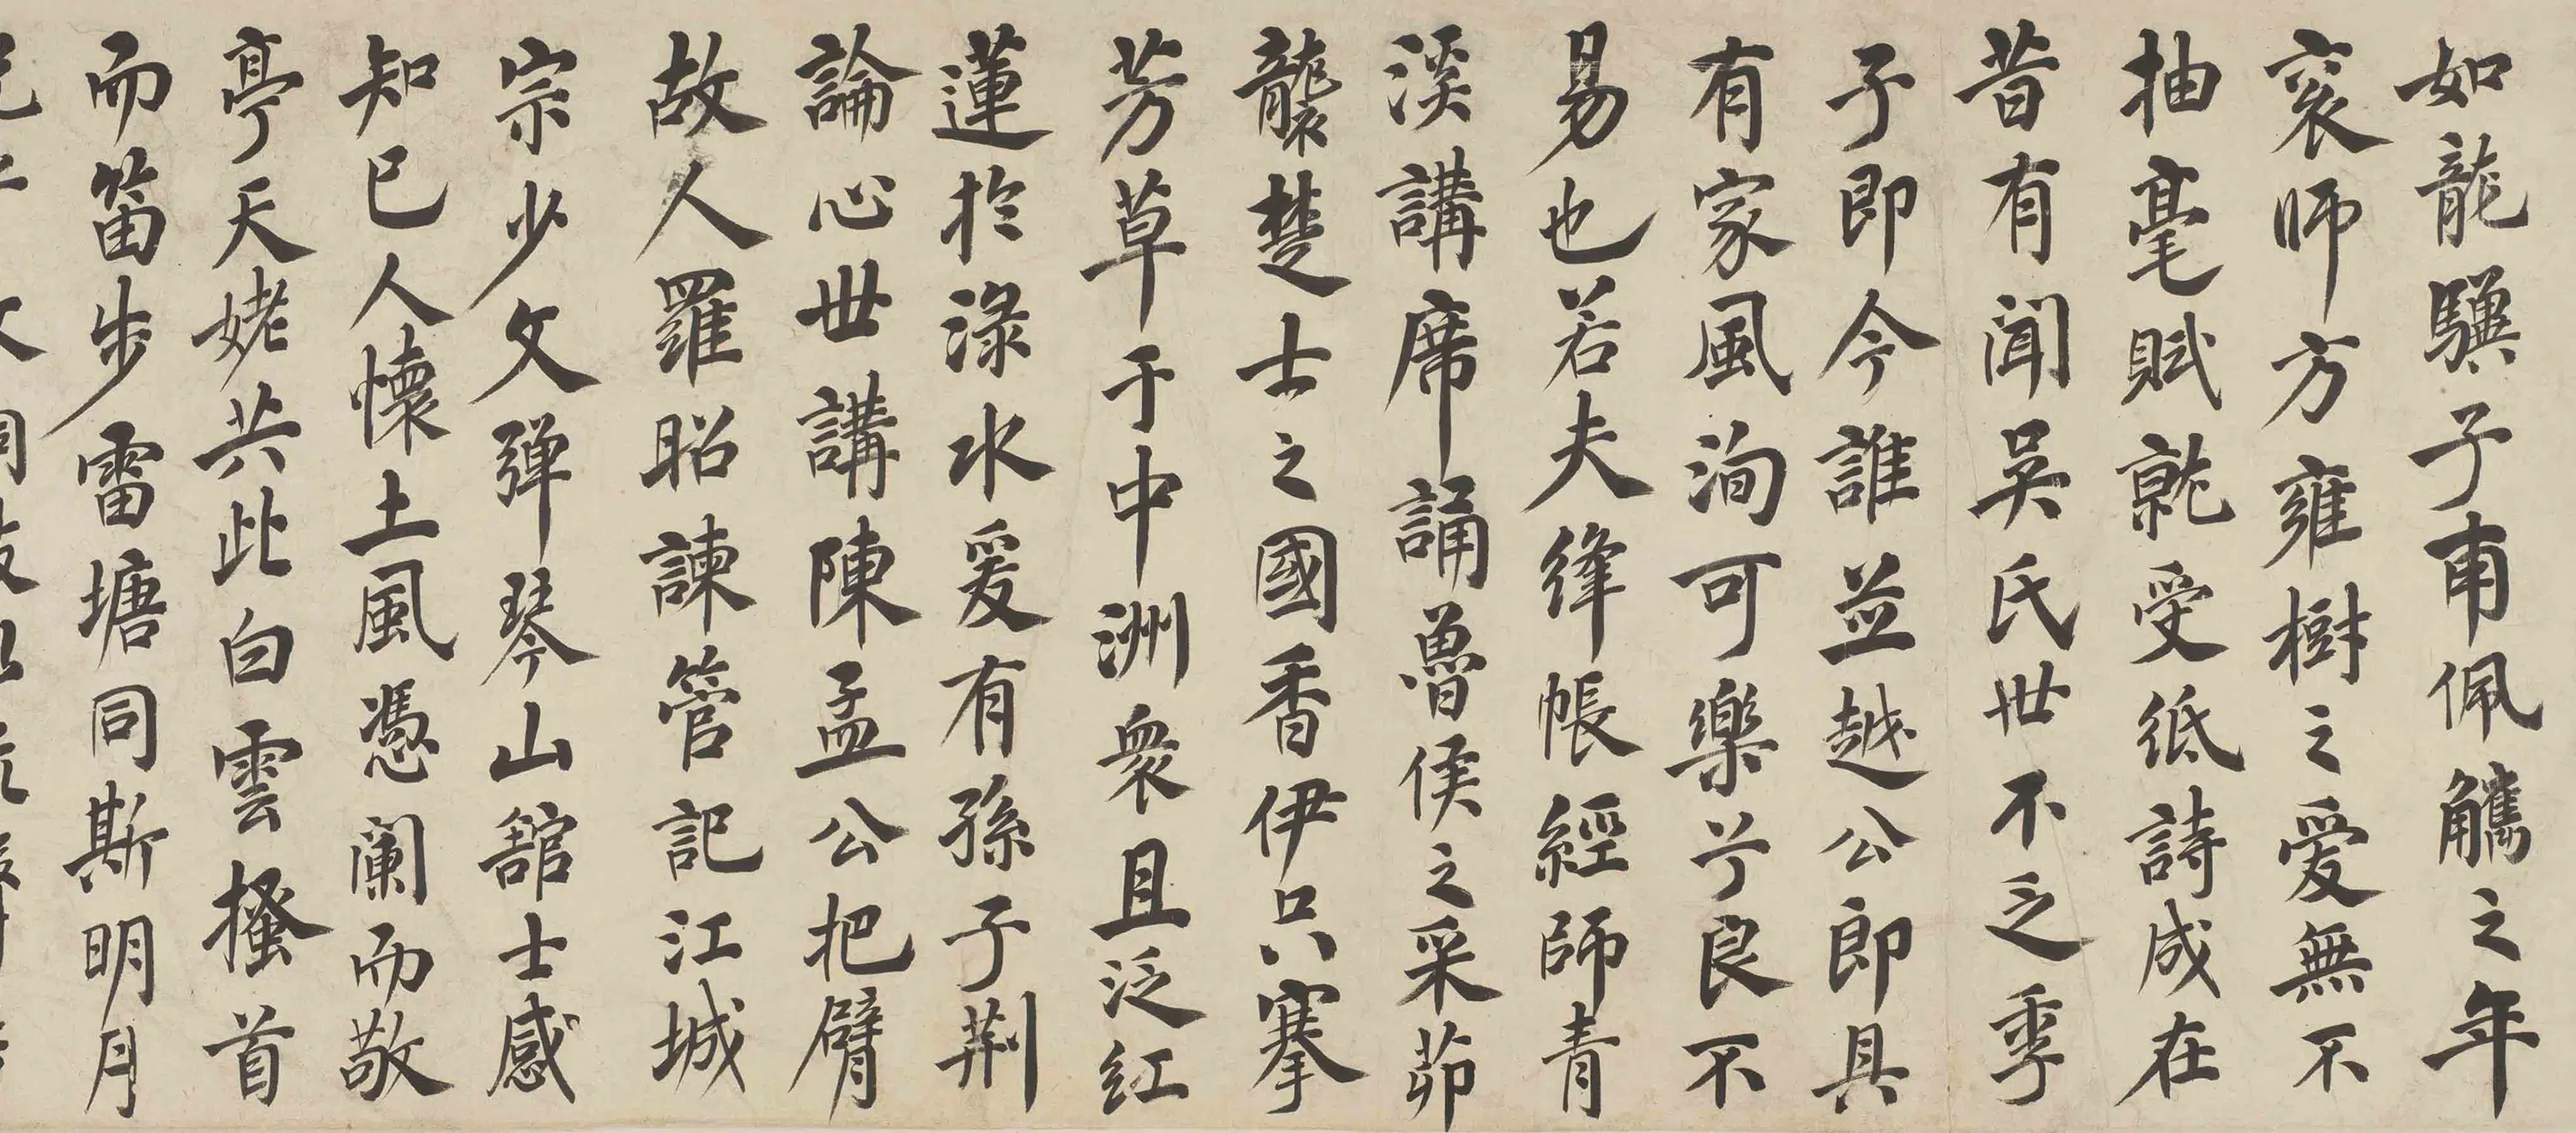 如龍驥子甫佩觿之年
衮師方雍樹之爱無不
抽毫賦就受紙詩成在
昔有聞吴氏世不乏季
子即今誰並越公郎具
有家風洵可樂兮良不
易也若夫絳帳經師青
溪講席誦魯侯之采茆
襲楚士之國香伊只搴
芳草于中洲衆且泛红
蓮於渌水爰有孫子荆
論心世講陳孟公把臂
故人羅昭諫管記江城
宗少文弹琴山舘士感
知已人懷土風憑闌而敬
亭天姥共此白雲搔首
而笛步雷塘同斯明月